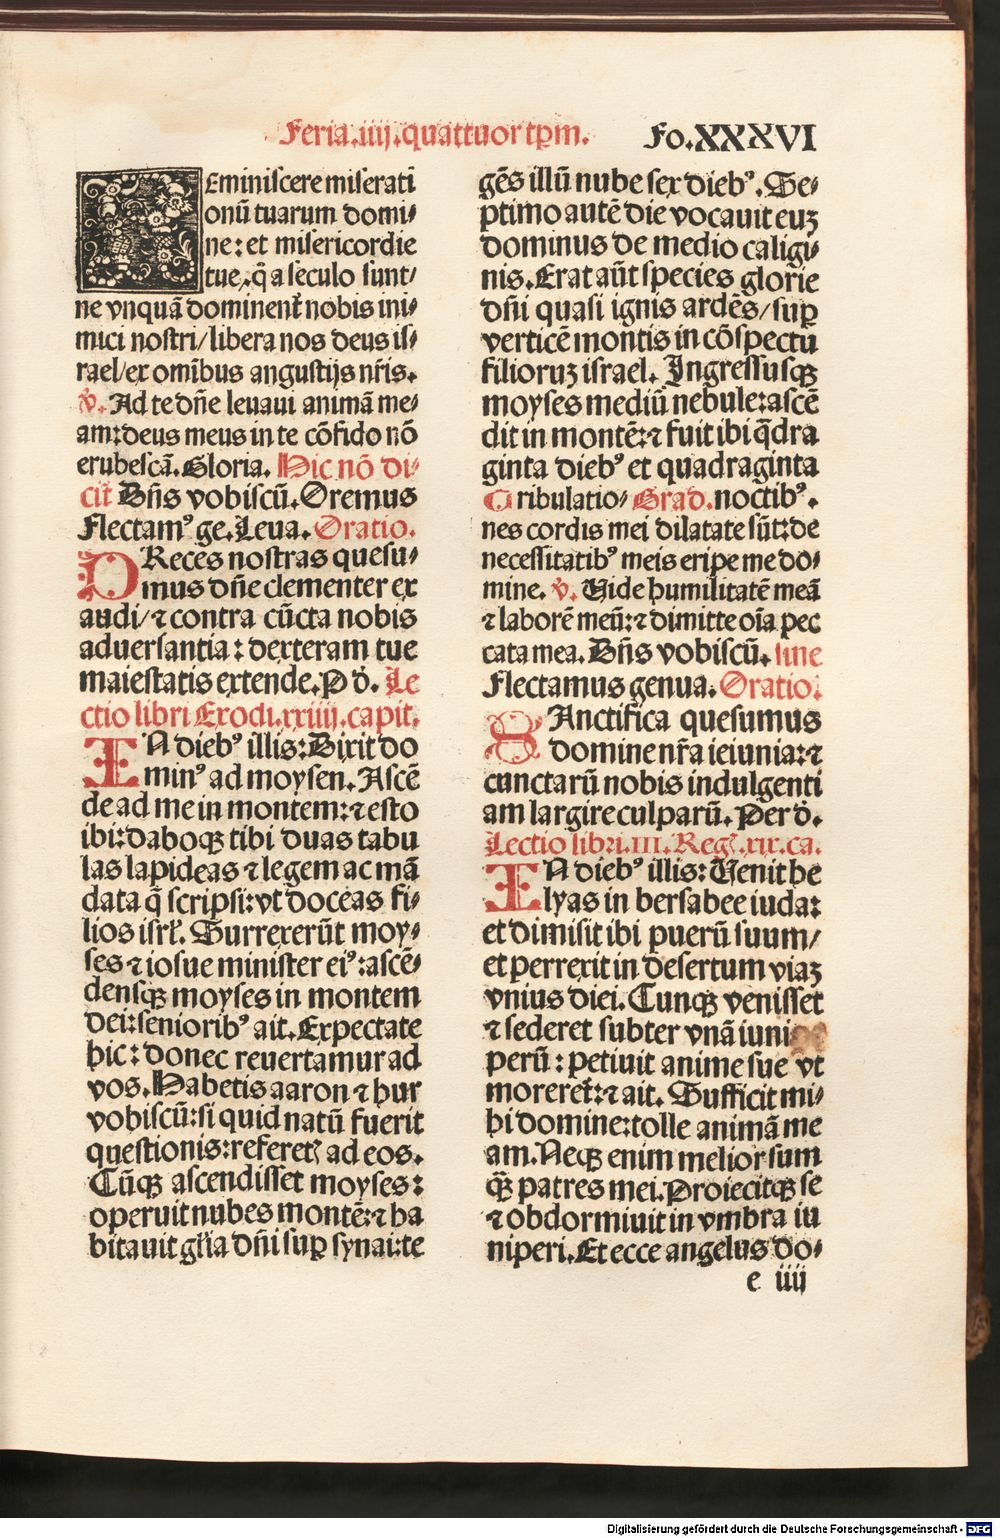 Feria.iiij.quattuor tp̄m.
Fo.XXXVI
REminiscere miserati
onū tuarum domi⸗
ne: et misericordie
tue, q̄ a seculo sunt/
ne vnquā dominent᷑ nobis ini⸗
mici nostri/libera nos deus is⸗
rael/ex omībus angustijs nr̄is.
v̄. Ad te dn̄e leuaui animā me⸗
am:deus meus in te cōfido nō
erubescā. Gloria. Hic nō di⸗
cit᷑ Dn̄s vobiscū. Oremus
Flectamꝰ ge. Leua. Oratio.
PReces nostras quesu⸗
mus dn̄e clementer ex
audi/⁊ contra cūcta nobis
aduersantia: dexteram tue
maiestatis extende. P d̄. Le
ctio libri Exodi.xxiiij.capit.
IN diebꝰ illis: Dixit do
minꝰ ad moysen. Ascē
de ad me in montem:⁊ esto
ibi: daboqꝫ tibi duas tabu
las lapideas ⁊ legem ac mā
data q̄ scripsi: vt doceas fi⸗
lios isrl̄. Surrexerūt moy⸗
ses ⁊ iosue minister eiꝰ: ascē⸗
densqꝫ moyses in montem
dei:senioribꝰ ait. Expectate
hic: donec reuertamur ad
vos. Habetis aaron ⁊ hur
vobiscū:si quid natū fuerit
questionis:referetꝭ ad eos.
Cūqꝫ ascendisset moyses:
operuit nubes montē:⁊ ha
bitauit gl̄ia dn̄i suꝑ synai:te
gēs illū nube sex diebꝰ. Se⸗
ptimo autē die vocauit euꝫ
dominus de medio caligi⸗
nis. Erat aūt species glorie
dn̄i quasi ignis ardēs/suꝑ
verticē montis in cōspectu
filioruꝫ israel. Ingressusqꝫ
moyses mediū nebule:ascē
dit in montē:⁊ fuit ibi q̄dra
ginta diebꝰ et quadraginta
Tribulatio⸗ Grad. noctibꝰ.
nes cordis mei dilatate sūt:de
necessitatibꝰ meis eripe me do⸗
mine. v̄. Vide humilitatē meā
⁊ laborē meū:⁊ dimitte oīa pec
cata mea. Dn̄s vobiscū. sine
Flectamus genua. Oratio.
SAnctifica quesumus
domine nr̄a ieiunia:⁊
cunctarū nobis indulgenti
am largire culparū. Per d̄.
Lectio libri.III.Reg.xix.ca.
IN diebꝰ illis: Venit he
lyas in bersabee iuda:
et dimisit ibi puerū suum/
et perrexit in desertum viaꝫ
vnius diei. Cunqꝫ venisset
⁊ sederet subter vnā iuni
perū: petiuit anime sue vt
moreret᷑:⁊ ait. Sufficit mi⸗
hi domine:tolle animā me
am. Neqꝫ enim melior sum
q̄ꝫ patres mei. Proiecitqꝫ se
⁊ obdormiuit in vmbra iu
niperi. Et ecce angelus do⸗
e iiij
Digitalisierung gefördert durch die Deutsche Forschungsgemeinschaft - DFG